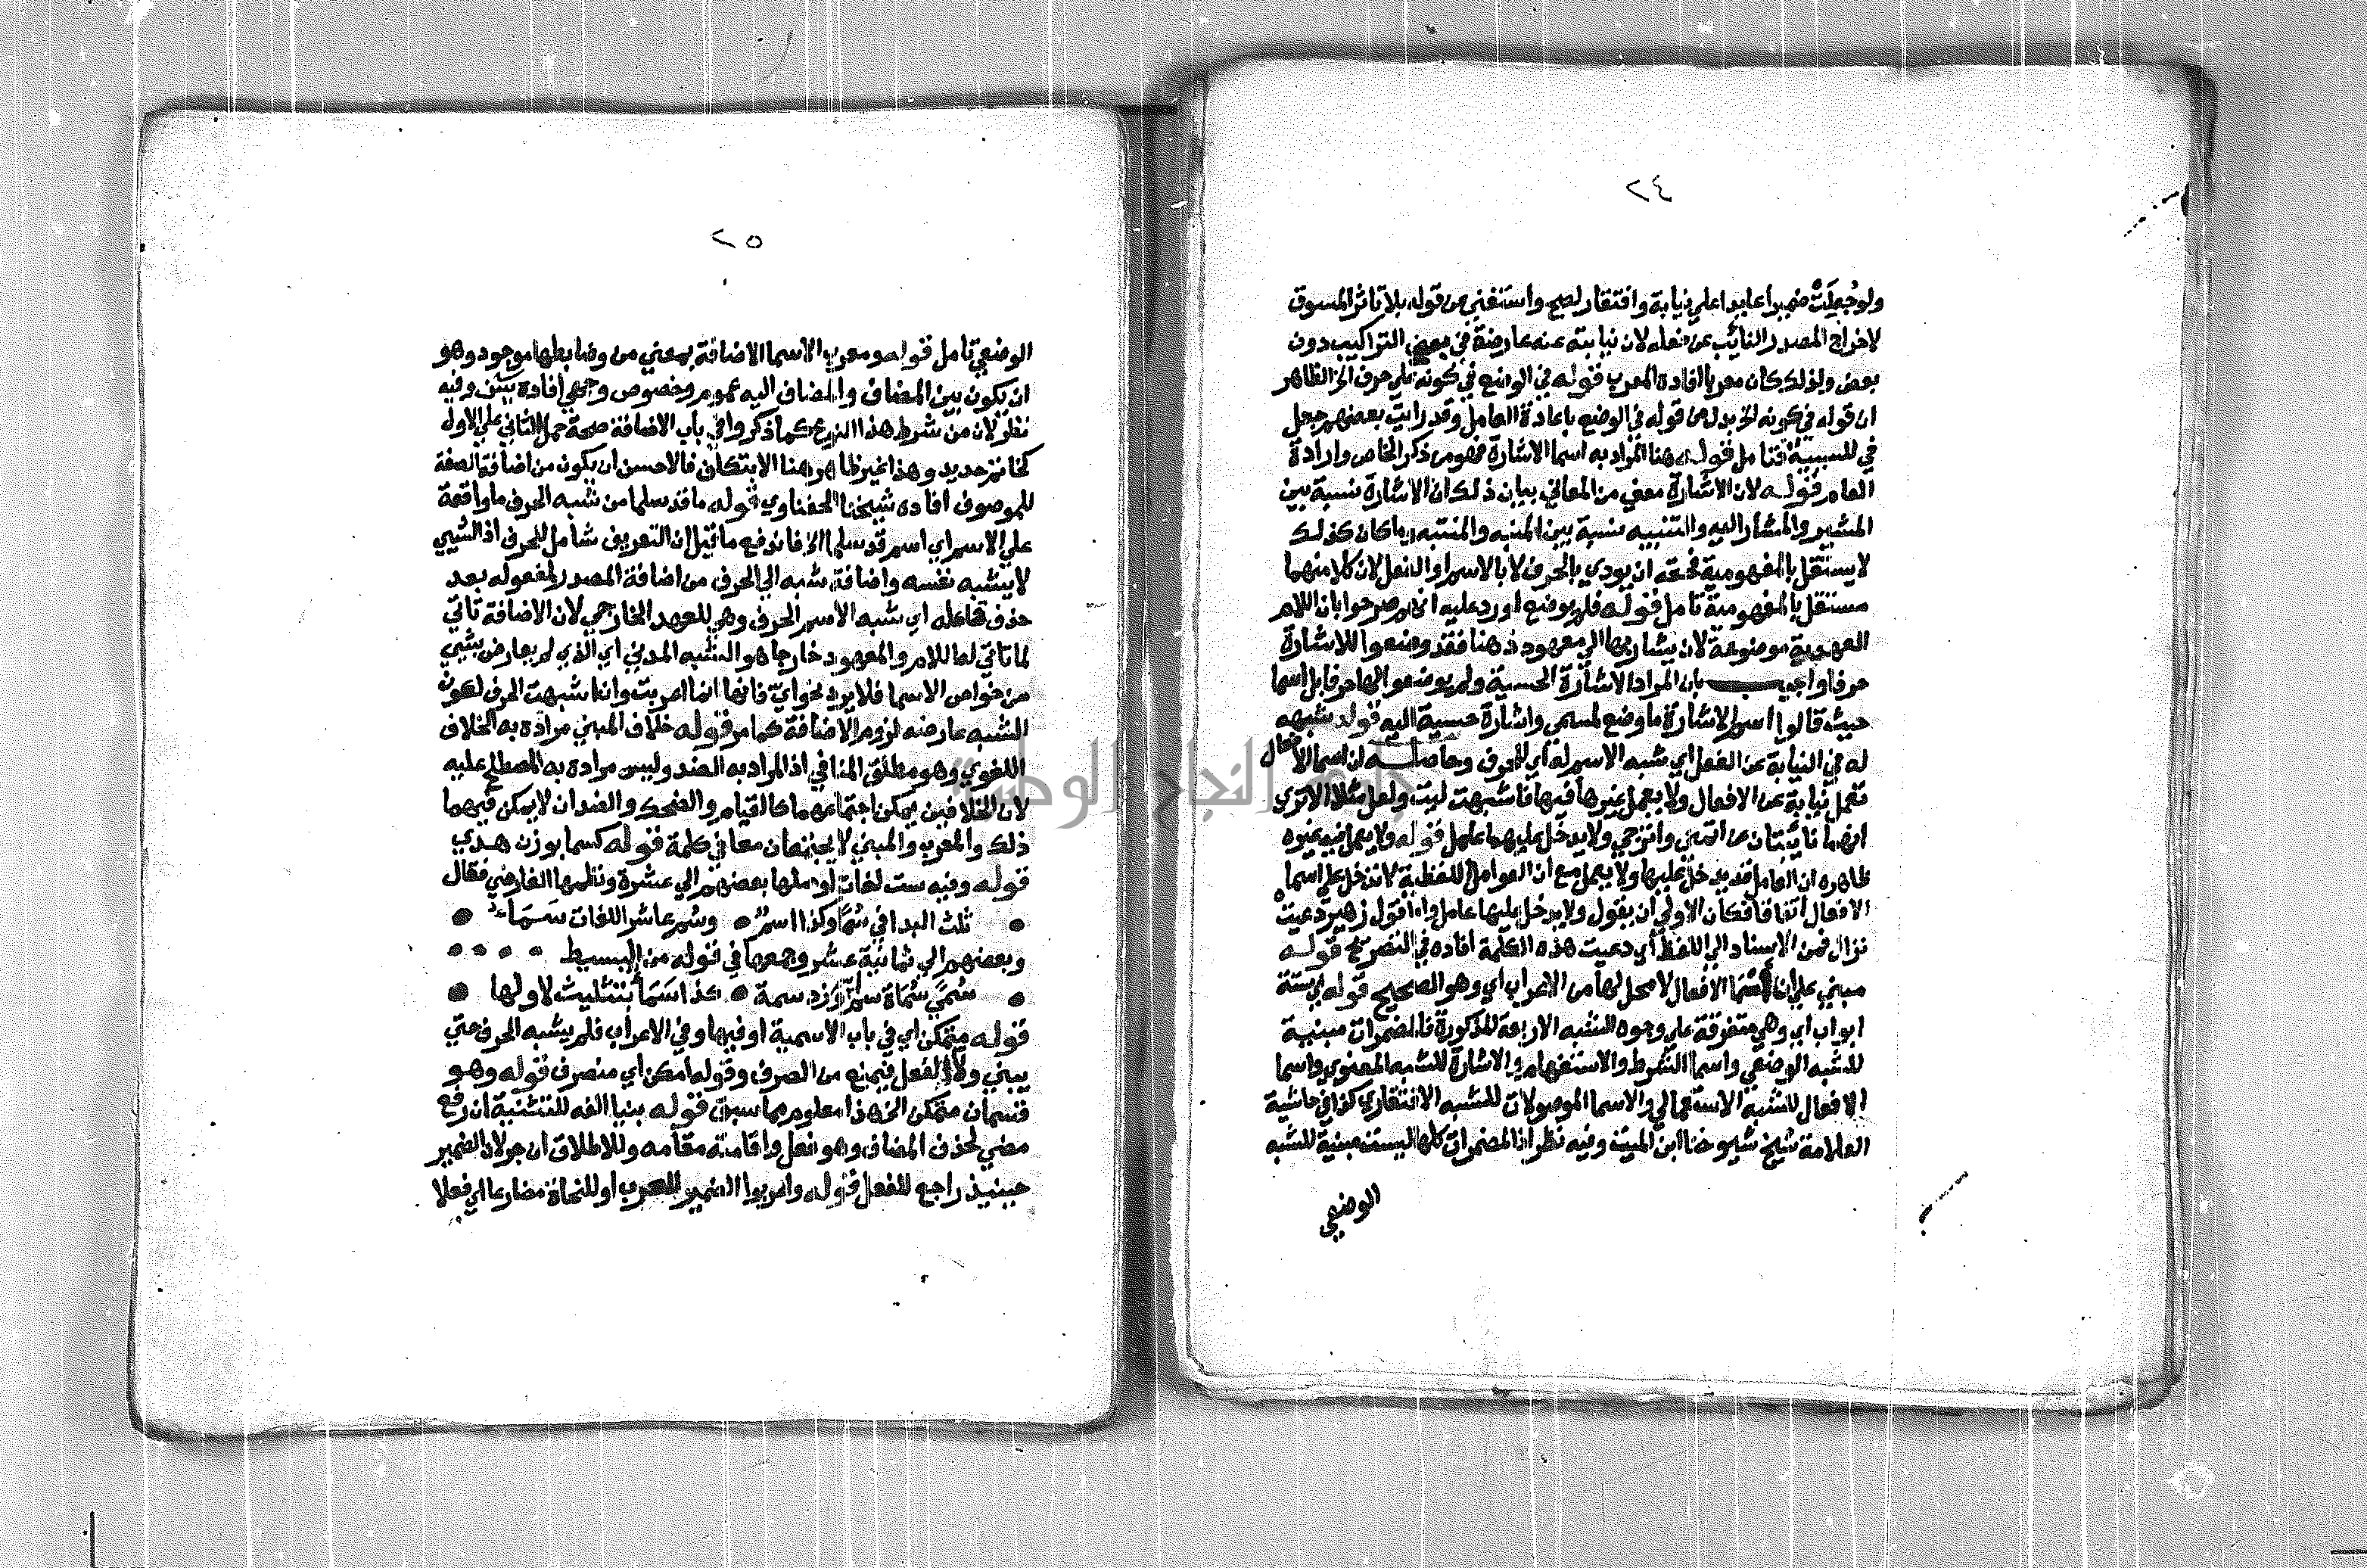 ٢٤
ولو جُعِلَتْ ضميرا عايدا على نيابة وافتقار لصح واستغنى عن قوله بلا تاثر المسوق
لاخراج المصدر النائب عن فعله لان نيابته عنه عارضة في بعض التراكيب دون
بعض ولذلك كان معربا افاده المعرب قوله في الوضع في كونه على حرف الخ الظاهر
ان قوله في كونه الخ بدل من قوله في الوضع باعادة العامل وقد رايت بعضهم جعل
في للسببية فتامل قوله هنا المراد به اسما الاشارة فهو من ذكر الخاص وارادة
العام قوله لان الاشارة معنى من المعاني بيان ذلك ان الاشارة نسبة بين
المشير والمشار اليه والتنبيه نسبة بين المنبه والمنتبه وما كان كذلك
لا يستقل بالمفهومية فحقه ان يودي بالحرف لا بالاسم او الفعل لان كلا منهما
مستقل بالمفهومية تامل قوله فلم يوضع اورد عليه انهم صرحوا بان اللام
العهدية موضوعة لان يشار بها الي معهود ذهنا فقد وضعوا للاشارة
حرفا واجيب بان المراد الاشارة الحسية ولم يوضعوا لها حرفا بل اسما
حيث قالوا اسم الاشارة ما وضع لمسمى واشارة حسية اليه قوله شبهه
له في النيابة عن الفعل اي شبه الاسم له اي للحرف وحاصله ان اسما الافعال
تعمل نيابة عن الافعال ولا يعمل غيرها فيها فاشبهت ليت ولعل مثلا الا ترى
انهما نايبتان عن اتمنى واترجى ولا يدخل عليهما عامل قوله ولا يعمل فيه غيره
ظاهره ان العامل قد يدخل عليها ولا يعمل مع ان العوامل اللفظية لا تدخل على اسما
الافعال اتفاقا فكان الاولى ان يقول ولا يدخل عليها عامل واما قول زهير دعيتْ
نزال فمن الاسناد الي اللفظ اي دعيت هذه الكلمة افاده في التصريح قوله
مبني على ان اسما الافعال لا محل لها من الاعراب اي وهو الصحيح قوله في ستة
ابواب اي وهي متفرقة على وجوه الشبه الاربعة المذكورة فالمضمرات مبنية
للشبه الوضعي واسما الشرط والاستفهام والاشارة للشبه المعنوي واسما
الافعال للشبه الاستعمالي والاسما الموصولات للشبه الافتقاري كذا في حاشية
العلامة شيخ شيوخنا ابن الميت وفيه نظر اذ المضمرات كلها ليست مبنية للشبه
الوضعي
٢٥
الوضعي تامل قوله ومعرب الاسما الاضافة بمعنى من وضابطها موجود وهو
ان يكون بين المضاف والمضاف اليه عموم وخصوص وجهي افاده يس وفيه
نظر لان من شرط هذا النوع كما ذكروا في باب الاضافة صحة حمل الثاني على الاول
كخاتم حديد وهذا غير ظاهر هنا الا بتكلف فالاحسن ان يكون من اضافة الصفة
للموصوف افاده شيخنا الحفناوي قوله ما قد سلما من شبه الحرف ما واقعة
على الاسم اي اسم قد سلما الخ فاندفع ما قيل ان التعريف شامل للحرف اذ الشيي
لا يشبه نفسه واضافة شبه الي الحرف من اضافة المصدر لمفعوله بعد
حذف فاعله اي شبه الاسم الحرف وهي للعهد الخارجي لان الاضافة تاتي
لما تاتي له اللام والمعهود خارجا هو الشبه المدني اي الذي لم يعارض بشيي
من خواص الاسما فلا يرد نحو اي فانها انما اعربت وان اشبهت الحرف لكون
الشبه عارضه لزوم الاضافة كما مر قوله خلاف المبني مراده به الخلاف
اللغوي وهو مطلق المنافي اذ المراد به الضد وليس مراده به المصطلح عليه
لان الخلافين يمكن اجتماعهما كالقيام والضحك والضدان لا يمكن فيهما
ذلك والمعرب والمبني لا يجتمعان معا في كلمة قوله كسما بوزن هدي
قوله وفيه ست لغات اوصلها بعضهم الي عشرة ونظمها الفارضي فقال
ثلث البدا في سُمًا وكذا اسمٌ وسُم عاشر اللغات سَمَاء
وبعضهم الي ثمانية عشر وجمعها في قوله من البسيط
سُمًى سُمَاة سمٌ وزد سمة كذا سَمَا بتثليث لاولها
قوله متمكن اي في باب الاسمية او فيها وفي الاعراب فلم يشبه الحرف حتى
يبنى ولا الفعل فيمنع من الصرف وقوله امكن اي منصرف قوله وهو
قسمان متمكن الخ هذا معلوم مما سبق قوله بنيا الفه للتثنية ان رفع
مضي لحذف المضاف وهو فعل واقامته مقامه وللاطلاق ان جر لان الضمير
حينيذ راجع للفعل قوله واعربوا الضمير للعرب او للنحاة مضارعا اي فعلا